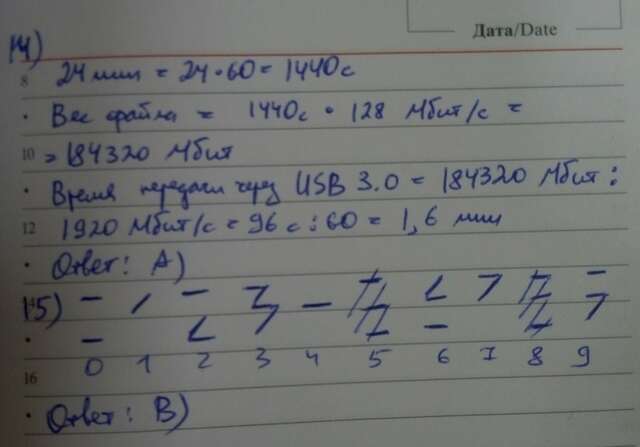 Дата/Date
14)
8 24 мин = 24 • 60 = 1440 с
Вес файла = 1440с • 128 Мбит/с =
10 = 184320 Мбит
Время передачи через USB 3.0 = 184320 Мбит :
12 1920 Мбит/с = 96 с : 60 = 1,6 мин
Ответ: А)
15)
0 1 2 3 4 5 6 7 8 9
16
Ответ: В)